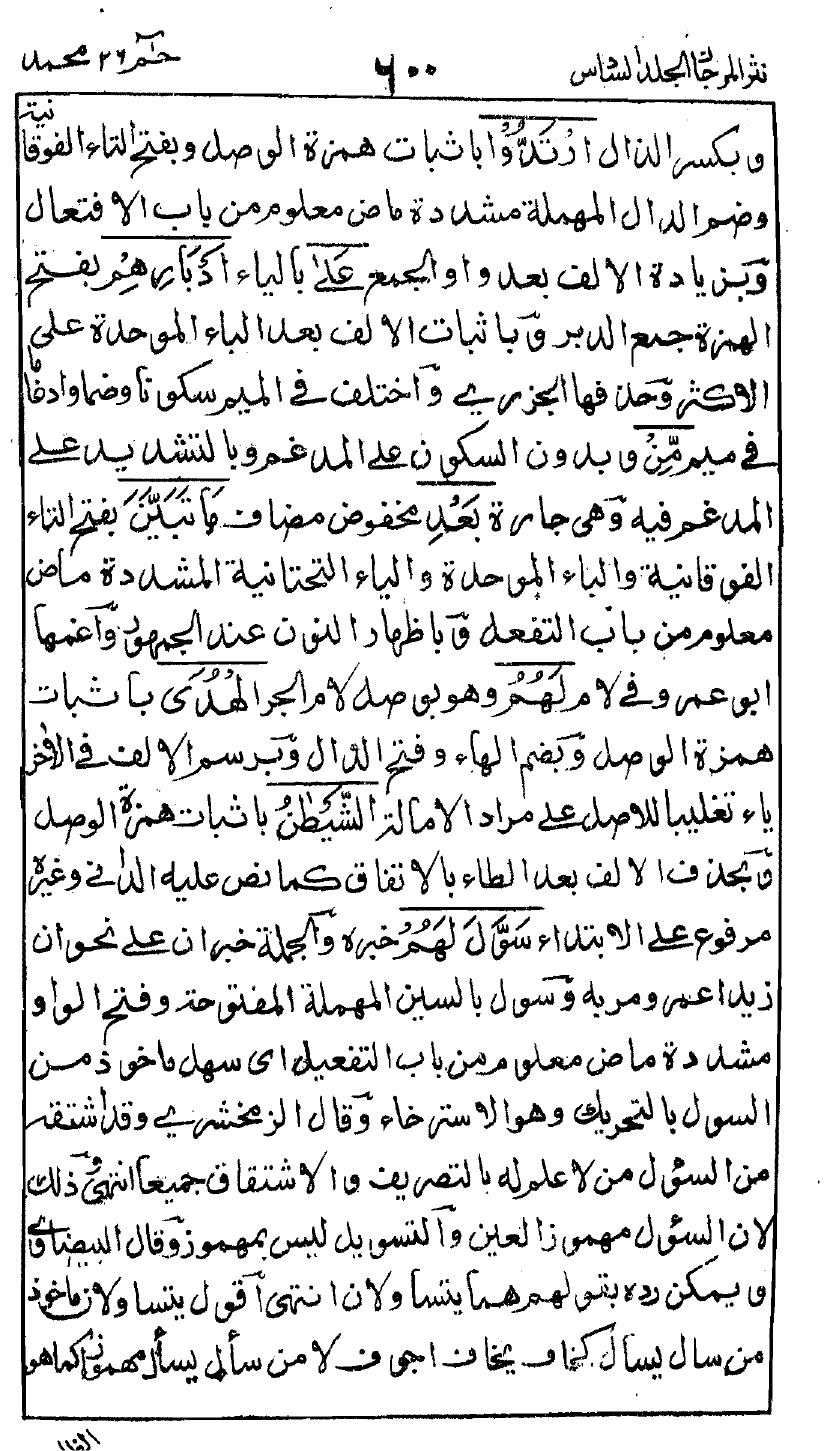 نثر المرجان المجلد السادس
٦٠٠
حٰم ٢٦ محمد
وبكسر الذال ارْتَدُّوْا باثبات همزة الوصل وبفتح التاء الفوقانية
وضم الدال المهملة مشددة ماض معلوم من باب الافتعال
وبزيادة الالف بعد واو الجمع عَلٰى بالياء اَدْبَارِهِمْ بفتح
الهمزة جمع الدبر وباثبات الالف بعد الباء الموحدة على
الاكثر وحذفها الجزري واختلف في الميم سكونا وضما وادغاما
في ميم مِّنْۢ وبدون السكون على المدغم وبالتشديد على
المدغم فيه وهي جارة بَعْدِ مخفوض مضاف مَا تَبَيَّنَ بفتح التاء
الفوقانية والباء الموحدة والياء التحتانية المشددة ماض
معلوم من باب التفعل وباظهار النون عند الجمهور وادغمها
ابو عمرو في لام لَهُمُ وهو بوصل لام الجر الْهُدَى باثبات
همزة الوصل وبضم الهاء وفتح الدال وبرسم الالف في الاخر
ياء تغليبا للاصل على مراد الامالة الشَّيْطٰنُ باثبات همزة الوصل
وبحذف الالف بعد الطاء بالاتفاق كما نص عليه الداني وغيره
مرفوع على الابتداء سَوَّلَ لَهُمْ خبره والجملة خبر ان على نحو ان
زيدا عمرو مر به وسول بالسين المهملة المفتوحة وفتح الواو
مشددة ماض معلوم من باب التفعيل اى سهل ماخوذ من
السول بالتحريك وهو الاسترخاء وقال الزمخشري وقد اشتقه
من السؤل من لا علم له بالتصريف والاشتقاق جميعا انتهى وذلك
لان السؤل مهموز العين والتسويل ليس بمهموز وقال البيضاوي
ويمكن رده بقولهم هما يتساولان انتهى اقول يتساولان ماخوذ
من سال يسال كخاف يخاف اجوف لا من سأل يسأل مهموزا كما هو